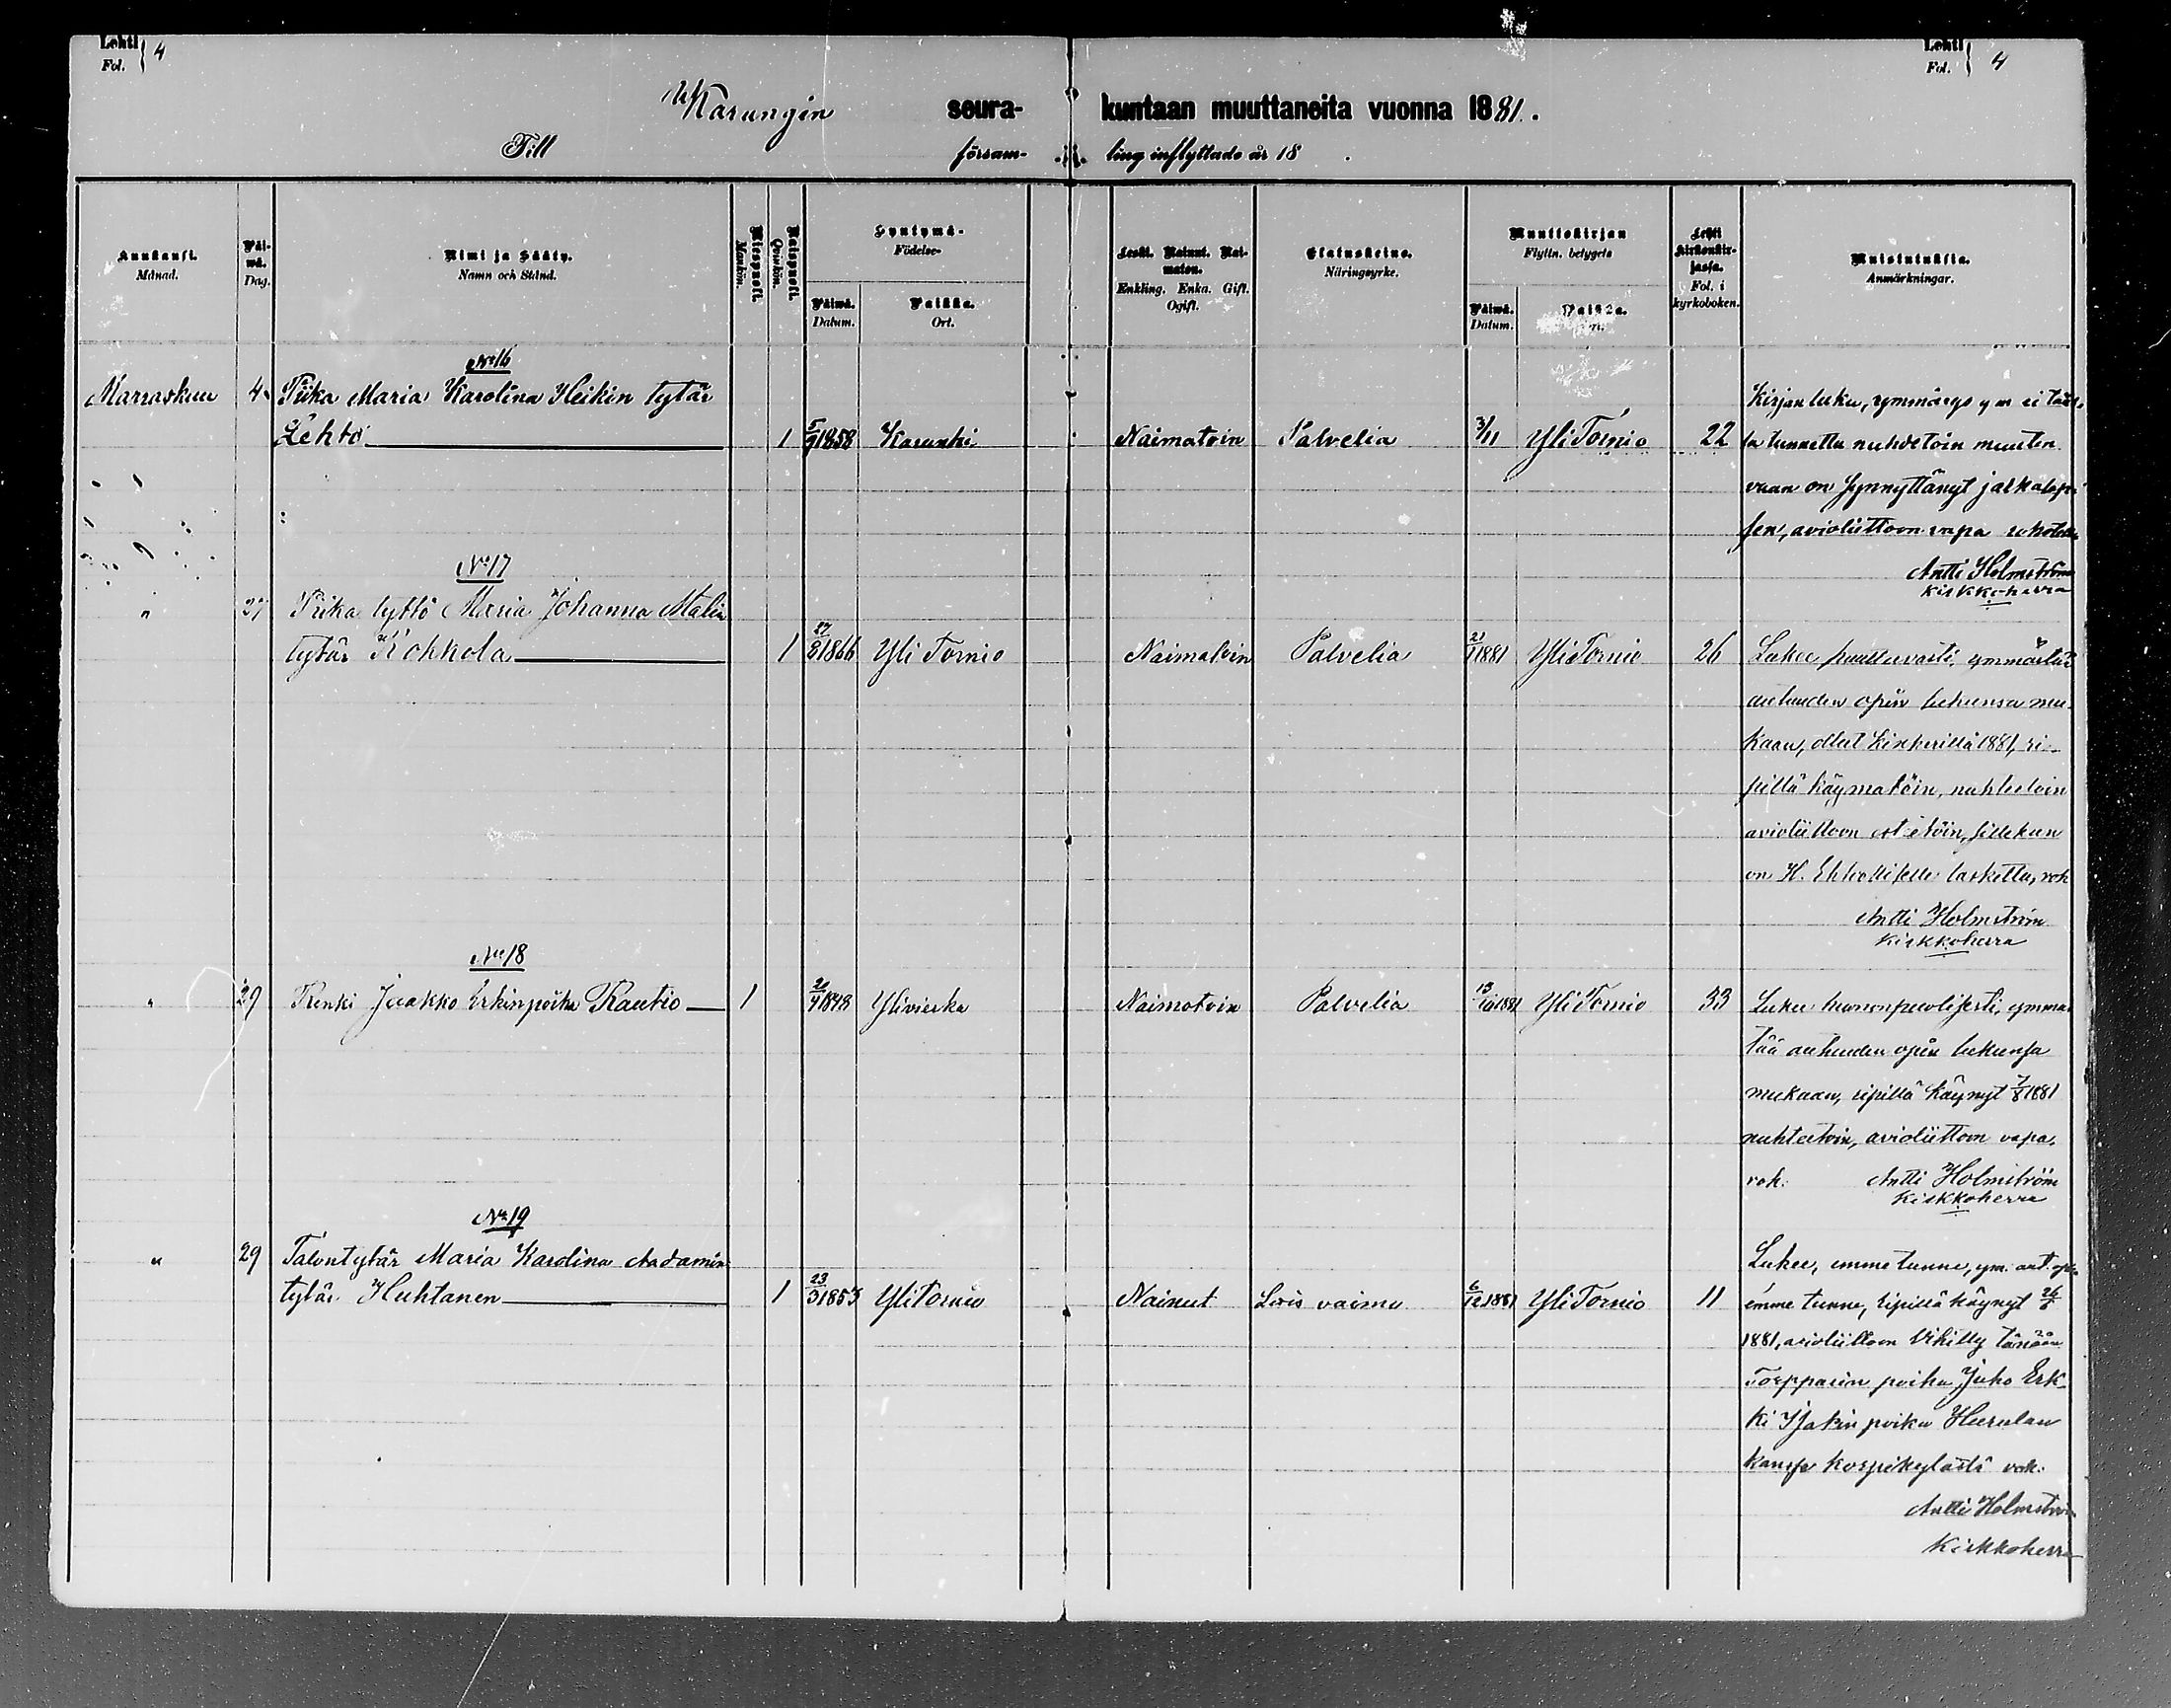 Lehti
Fol. 4
Lehti
Fol. 4
Karungin seurakuntaan muuttaneita vuonna 1881.
Till församling inflyttade år 18 .
Kuukausi.
Månad.
Päivä.
Dag.
Nimi ja Sääty.
Namn och Stånd.
Miespuoli.
Mankön.
Naispuoli.
Qvinkön.
Syntymä-
Födelse-
Päivä.
Datum.
Paikka.
Ort.
Leski. Nainut. Naimaton.
Enkling. Enka. Gift.
Ogift.
Elatuskeino.
Näringsyrke.
Muuttokirjan
Flyttn. betygets
Päivä.
Datum.
Paikka.
Lehti
kirkonkirjassa.
Fol. i
kyrkoboken.
Muistutuksia.
Anmärkningar.
No 16
Marraskuu 4. Piika Maria Karolina Heikin tytär
Lehto 1 5/9 1858 Karunki Naimatoin Palvelia 3/11 Yli Tornio 22
Kirjan luku, ymmärys ym ei täält
tunnettu nuhdetoin muuten
vaan on synnyttänyt jalkalap
sen, avioliittoon vapa
Antti Holmström
Kirkkoherra
No 17
" 27 Piika tyttö Maria Johanna Matin
tytär Kokkola 1 27/8 1866 Yli Tornio Naimatoin Palvelia 21/11 1881 Yli Tornio 26
Lukee puuttuvasti, ymmärtää
autuuden opin lukunsa mu
kaan, ollut Kinkerillä 1881, ri-
pillä käymatöin, nuhteetoin
avioliittoon esteetöin, sillekun
on H. Ehtoolliselle laskettu, rok
Antti Holmström
Kirkkoherra
No 18
" 29 Renki Jaakko Erkinpoika Rautio 1 20/4 1848 Ylivieska Naimatoin Palvelia 13/10 1881 Yli Tornio 33
Lukee huononpuolisesti, ymmär
tää autuuden opin lukunsa
mukaan, ripillä käynyt 7/8 1881
nuhteetoin, avioliittoon vapa,
rok. Antti Holmström
Kirkkoherra
No 19
" 29 Talontytär Maria Karolina Aadamin
tytär Huhtanen 1 23/3 1853 Yli Tornio Nainut Lois vaimo 6/12 1881 Yli Tornio 11
Lukee, emme tunne, ym. aut. op.
emme tunne, ripillä käynyt 26/5
1881, avioliittoon Vihitty tänään
Torpparin poika Juho Erk
ki Isakin poika
Kanssa Korpikylästä rok.
Antti Holmström
Kirkkoherra